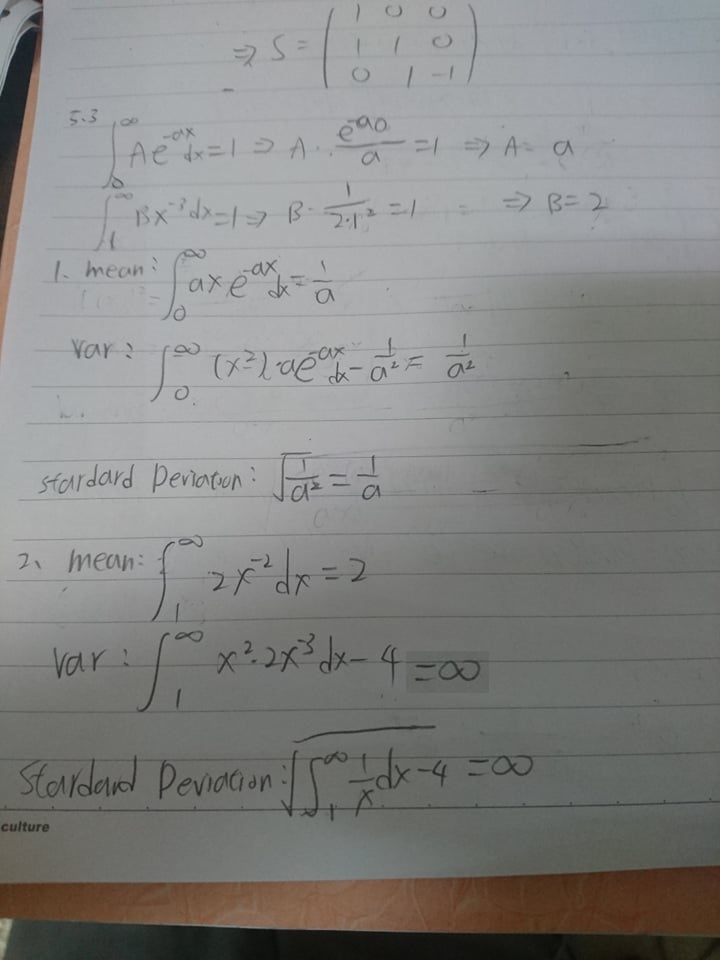 ⇒ S = ( 1 0 0
1 1 0
0 1 -1 )
5.3
∫₀^∞ Ae^{-ax}dx = 1 ⇒ A · e^{-a0}/a = 1 ⇒ A = a
∫₁^∞ Bx^{-3}dx = 1 ⇒ B · 1/(2·1²) = 1 ⇒ B = 2
1. mean: ∫₀^∞ ax e^{-ax}dx = 1/a
var: ∫₀^∞ (x²)·ae^{-ax}dx - 1/a² = 1/a²
stardard Deviation: √(1/a²) = 1/a
2、 mean: ∫₁^∞ 2x^{-2}dx = 2
var: ∫₁^∞ x²·2x^{-3}dx - 4 = ∞
Stardard Deviation: √(∫₁^∞ 1/x dx - 4) = ∞
culture